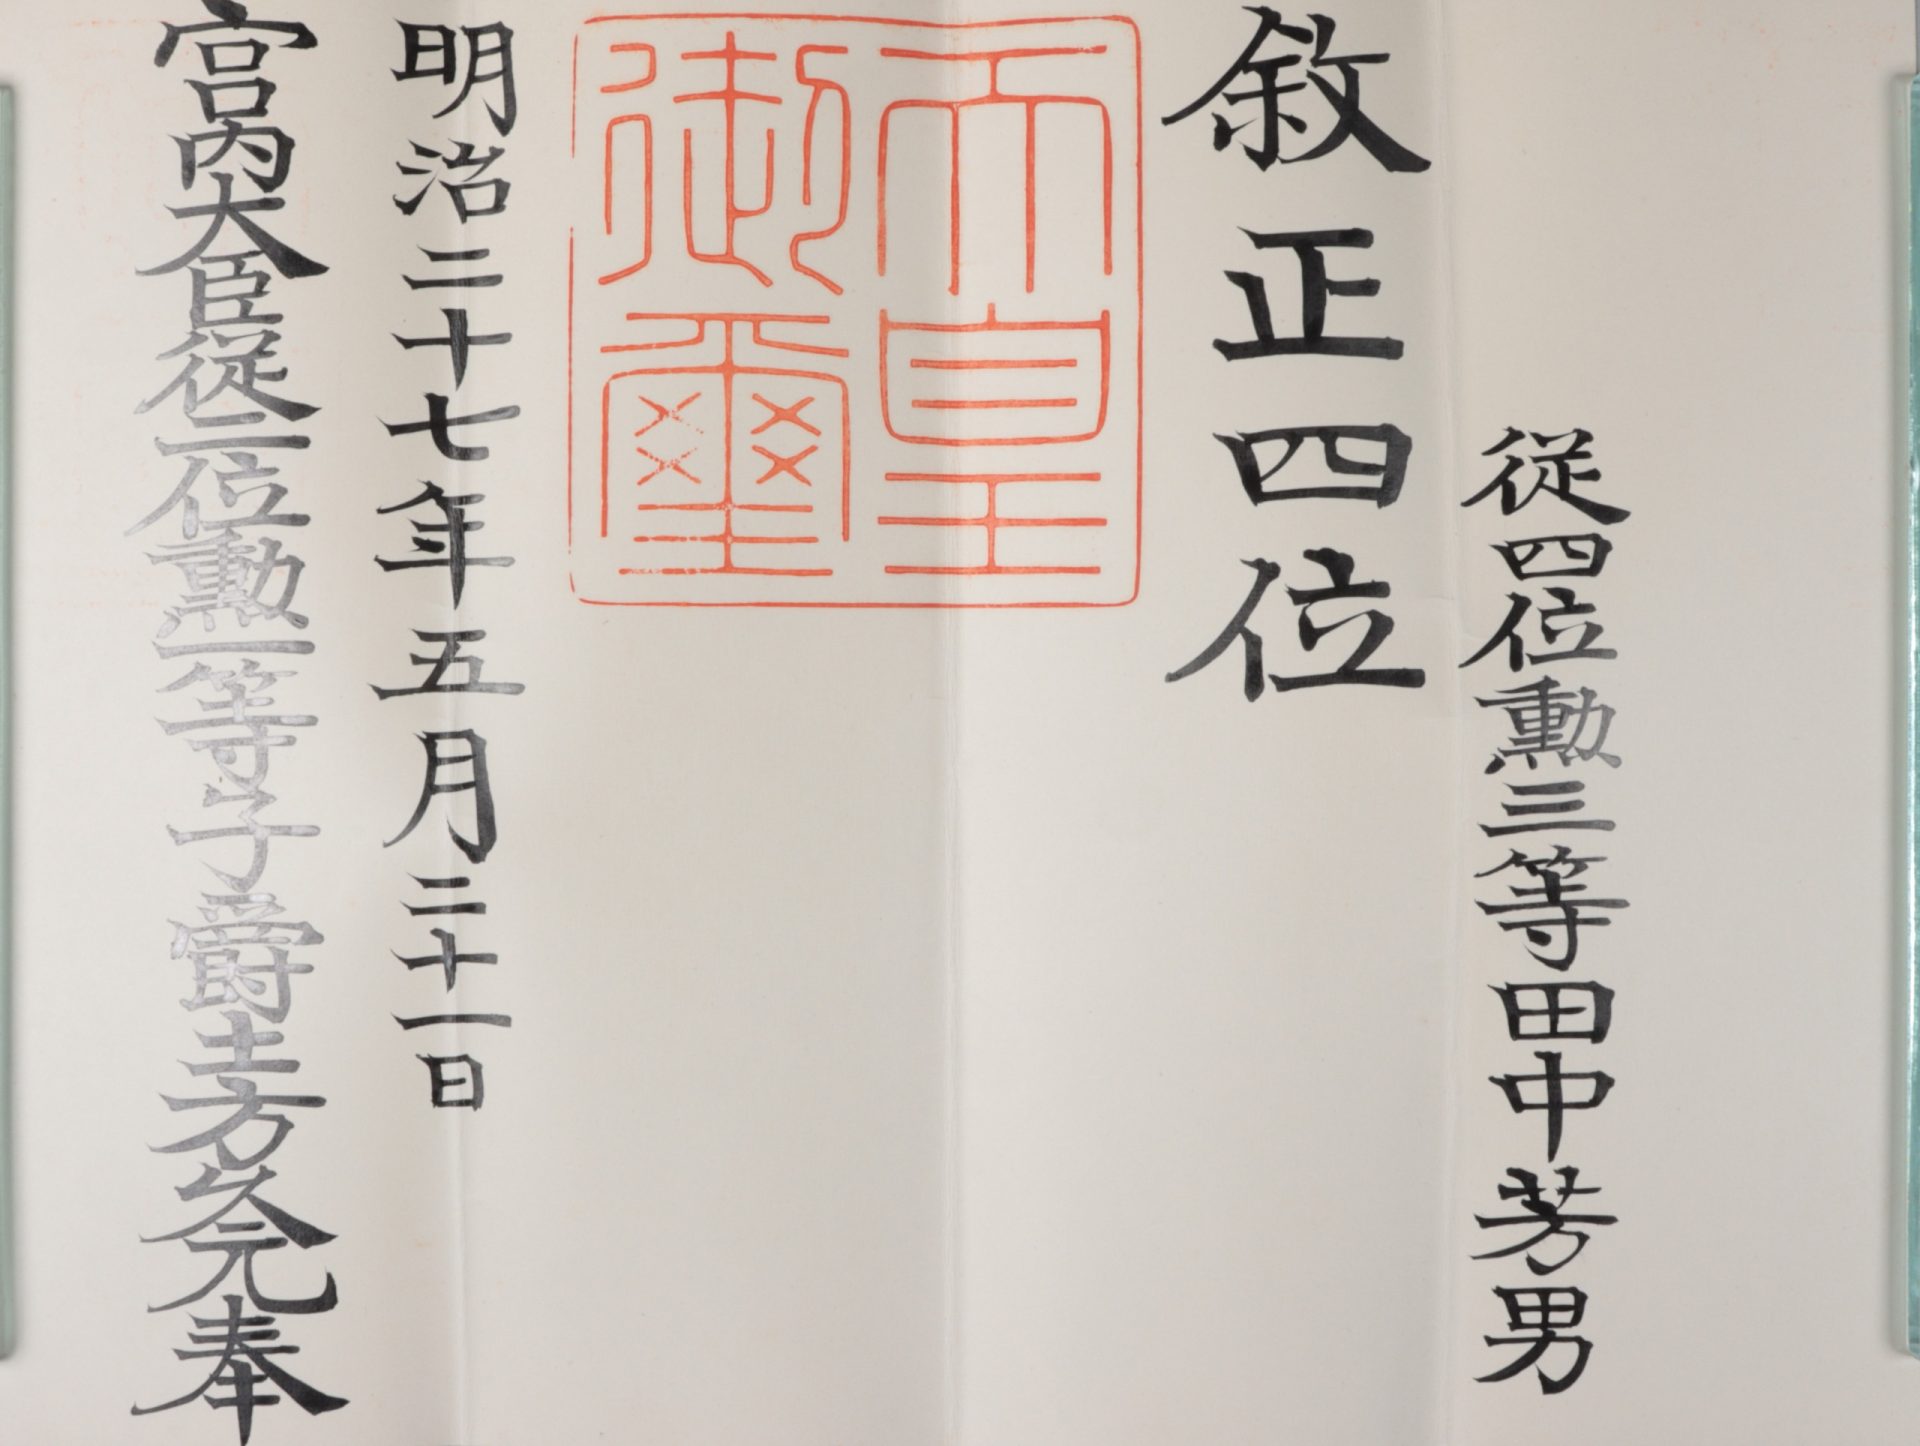 従四位勲三等田中芳男
敘正四位
天皇
御璽
明治二十七年五月二十一日
宮内大臣従二位勲一等子爵土方久元奉